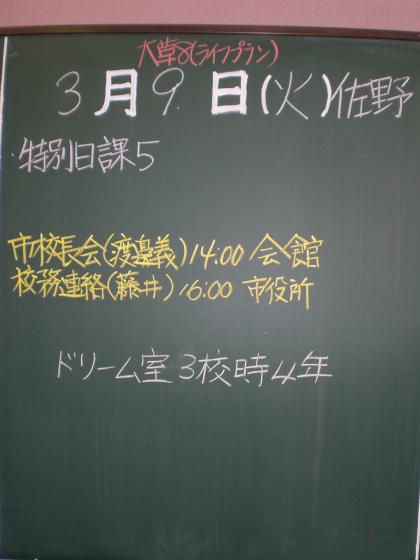 大草8(ライフプラン)
3月9日(火)佐野
特別日課5
市校長会(渡邉義)14:00 会館
校務連絡(藤井)16:00 市役所
ドリーム室 3校時4年